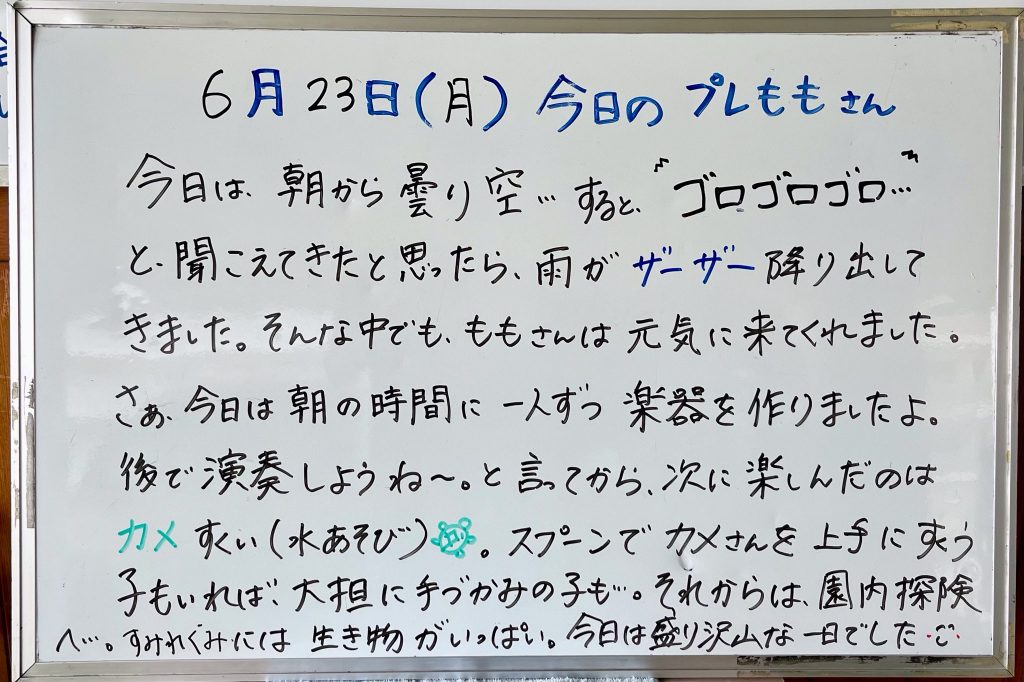 6月23日(月) 今日の プレももさん
今日は、朝から曇り空… すると、"ゴロゴロゴロ…"
と、聞こえてきたと思ったら、雨が ザーザー降り出して
きました。そんな中でも、ももさんは 元気に来てくれました。
さぁ、今日は朝の時間に 一人ずつ 楽器を作りましたよ。
後で演奏しようね〜。と言ってから、次に楽しんだのは
カメすくい(水あそび)。スプーンでカメさんを上手にすくう
子もいれば、大担に手づかみの子も…。それからは、園内探険
へ…。すみれぐみには 生き物がいっぱい。今日は盛り沢山な一日でした